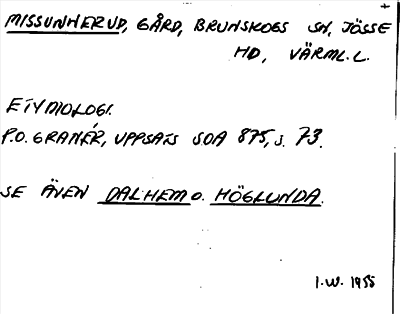 MISSUNNERUD, GÅRD, BRUNSKOGS SN, JÖSSE
HD, VÄRML. L.
ETYMOLOGI.
P.O. GRANÉR, UPPSATS SOA 875, S. 73.
SE ÄVEN DALHEM O. HÖGLUNDA.
I.W. 1955